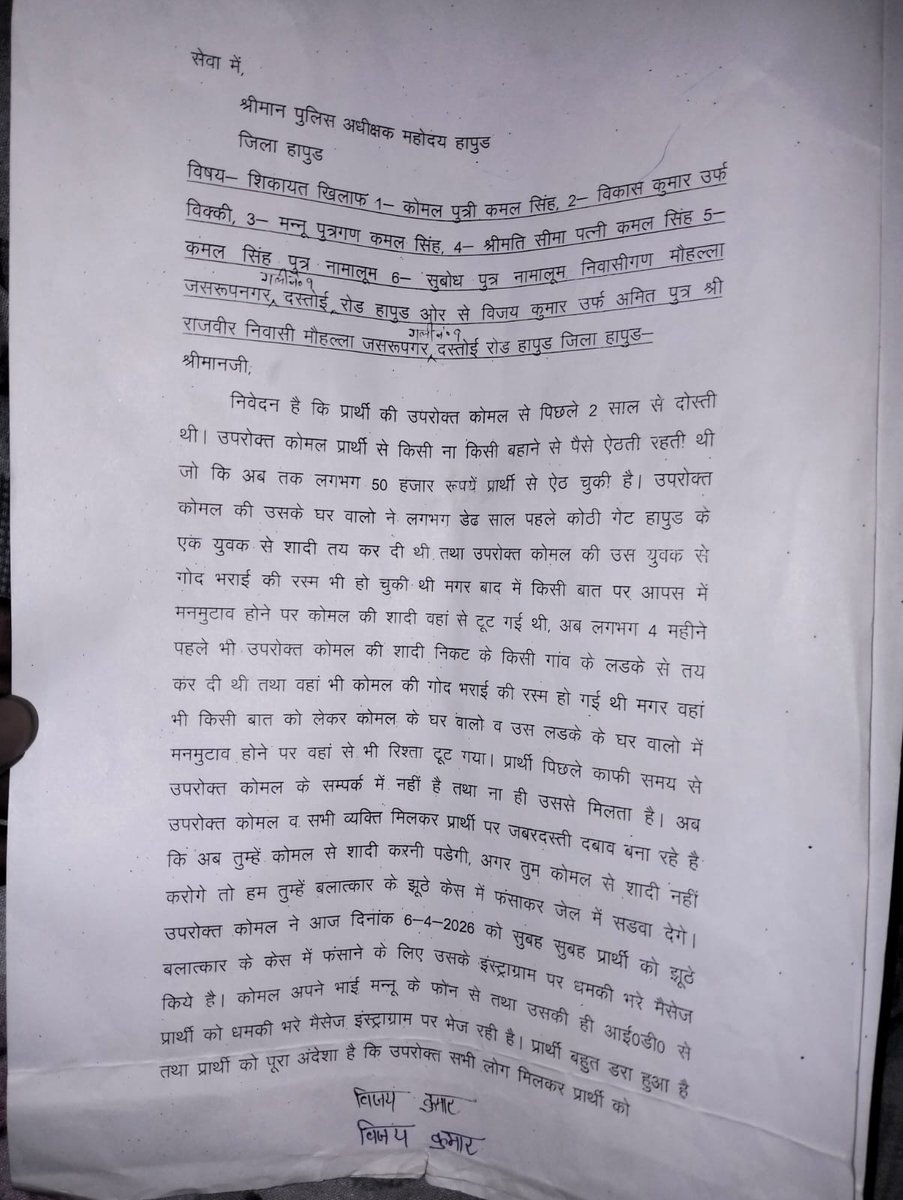 सेवा में,
श्रीमान पुलिस अधीक्षक महोदय हापुड
जिला हापुड
विषय– शिकायत खिलाफ 1– कोमल पुत्री कमल सिंह, 2– विकास कुमार उर्फ
विक्की, 3– मन्नू पुत्रगण कमल सिंह, 4– श्रीमति सीमा पत्नी कमल सिंह 5–
कमल सिंह पुत्र नामालूम 6– सुबोध पुत्र नामालूम निवासीगण मौहल्ला
गली नं० १
जसरूपनगर, दस्तोई रोड हापुड ओर से विजय कुमार उर्फ अमित पुत्र श्री
गली नं० १
राजवीर निवासी मौहल्ला जसरूपगर दस्तोई रोड हापुड जिला हापुड–
श्रीमानजी,
निवेदन है कि प्रार्थी की उपरोक्त कोमल से पिछले 2 साल से दोस्ती
थी। उपरोक्त कोमल प्रार्थी से किसी ना किसी बहाने से पैसे ऐठती रहती थी
जो कि अब तक लगभग 50 हजार रूपयें प्रार्थी से ऐठ चुकी है। उपरोक्त
कोमल की उसके घर वालो ने लगभग डेढ साल पहले कोठी गेट हापुड के
एक युवक से शादी तय कर दी थी तथा उपरोक्त कोमल की उस युवक से
गोद भराई की रस्म भी हो चुकी थी मगर बाद में किसी बात पर आपस में
मनमुटाव होने पर कोमल की शादी वहां से टूट गई थी, अब लगभग 4 महीने
पहले भी उपरोक्त कोमल की शादी निकट के किसी गांव के लडके से तय
कर दी थी तथा वहां भी कोमल की गोद भराई की रस्म हो गई थी मगर वहां
भी किसी बात को लेकर कोमल के घर वालो व उस लडके के घर वालो में
मनमुटाव होने पर वहां से भी रिश्ता टूट गया। प्रार्थी पिछले काफी समय से
उपरोक्त कोमल के सम्पर्क में नहीं है तथा ना ही उससे मिलता है। अब
उपरोक्त कोमल व सभी व्यक्ति मिलकर प्रार्थी पर जबरदस्ती दबाव बना रहे है
कि अब तुम्हें कोमल से शादी करनी पडेगी, अगर तुम कोमल से शादी नहीं
करोगे तो हम तुम्हें बलात्कार के झूठे केस में फंसाकर जेल में सडवा देगे।
उपरोक्त कोमल ने आज दिनांक 6–4–2026 को सुबह सुबह प्रार्थी को झूठे
बलात्कार के केस में फंसाने के लिए उसके इंस्ट्राग्राम पर धमकी भरे मैसेज
किये है। कोमल अपने भाई मन्नू के फोन से तथा उसकी ही आई0डी0 से
प्रार्थी को धमकी भरे मैसेज इंस्ट्राग्राम पर भेज रही है। प्रार्थी बहुत डरा हुआ है
तथा प्रार्थी को पूरा अंदेशा है कि उपरोक्त सभी लोग मिलकर प्रार्थी को
विजय कुमार
विजय कुमार